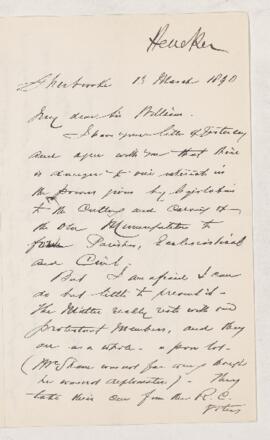 Heneker
Sherbrooke 13 March 1890
My dear Sir William.
I have your letter of Yesterday
and agree with you that there
is danger to our interests in
the Powers given by legislation
to the Cutting and Carving of
the Old Municipalities to
form Parishes, Ecclesiastical
and Civil.
But I am afraid I can
do but little to prevent it.
The Matter really rests with our
Protestant Members, and they
are as a whole a poor lot.
(Mr Shaw was not far wrong though
he was not diplomatic). They
take their cue from the R. C.
voters